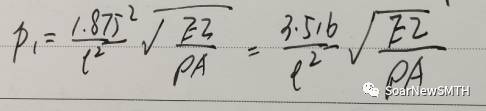 p₁ = 1.875² / l² √(EI / ρA) = 3.516 / l² √(EI / ρA)
SoarNewSMTH